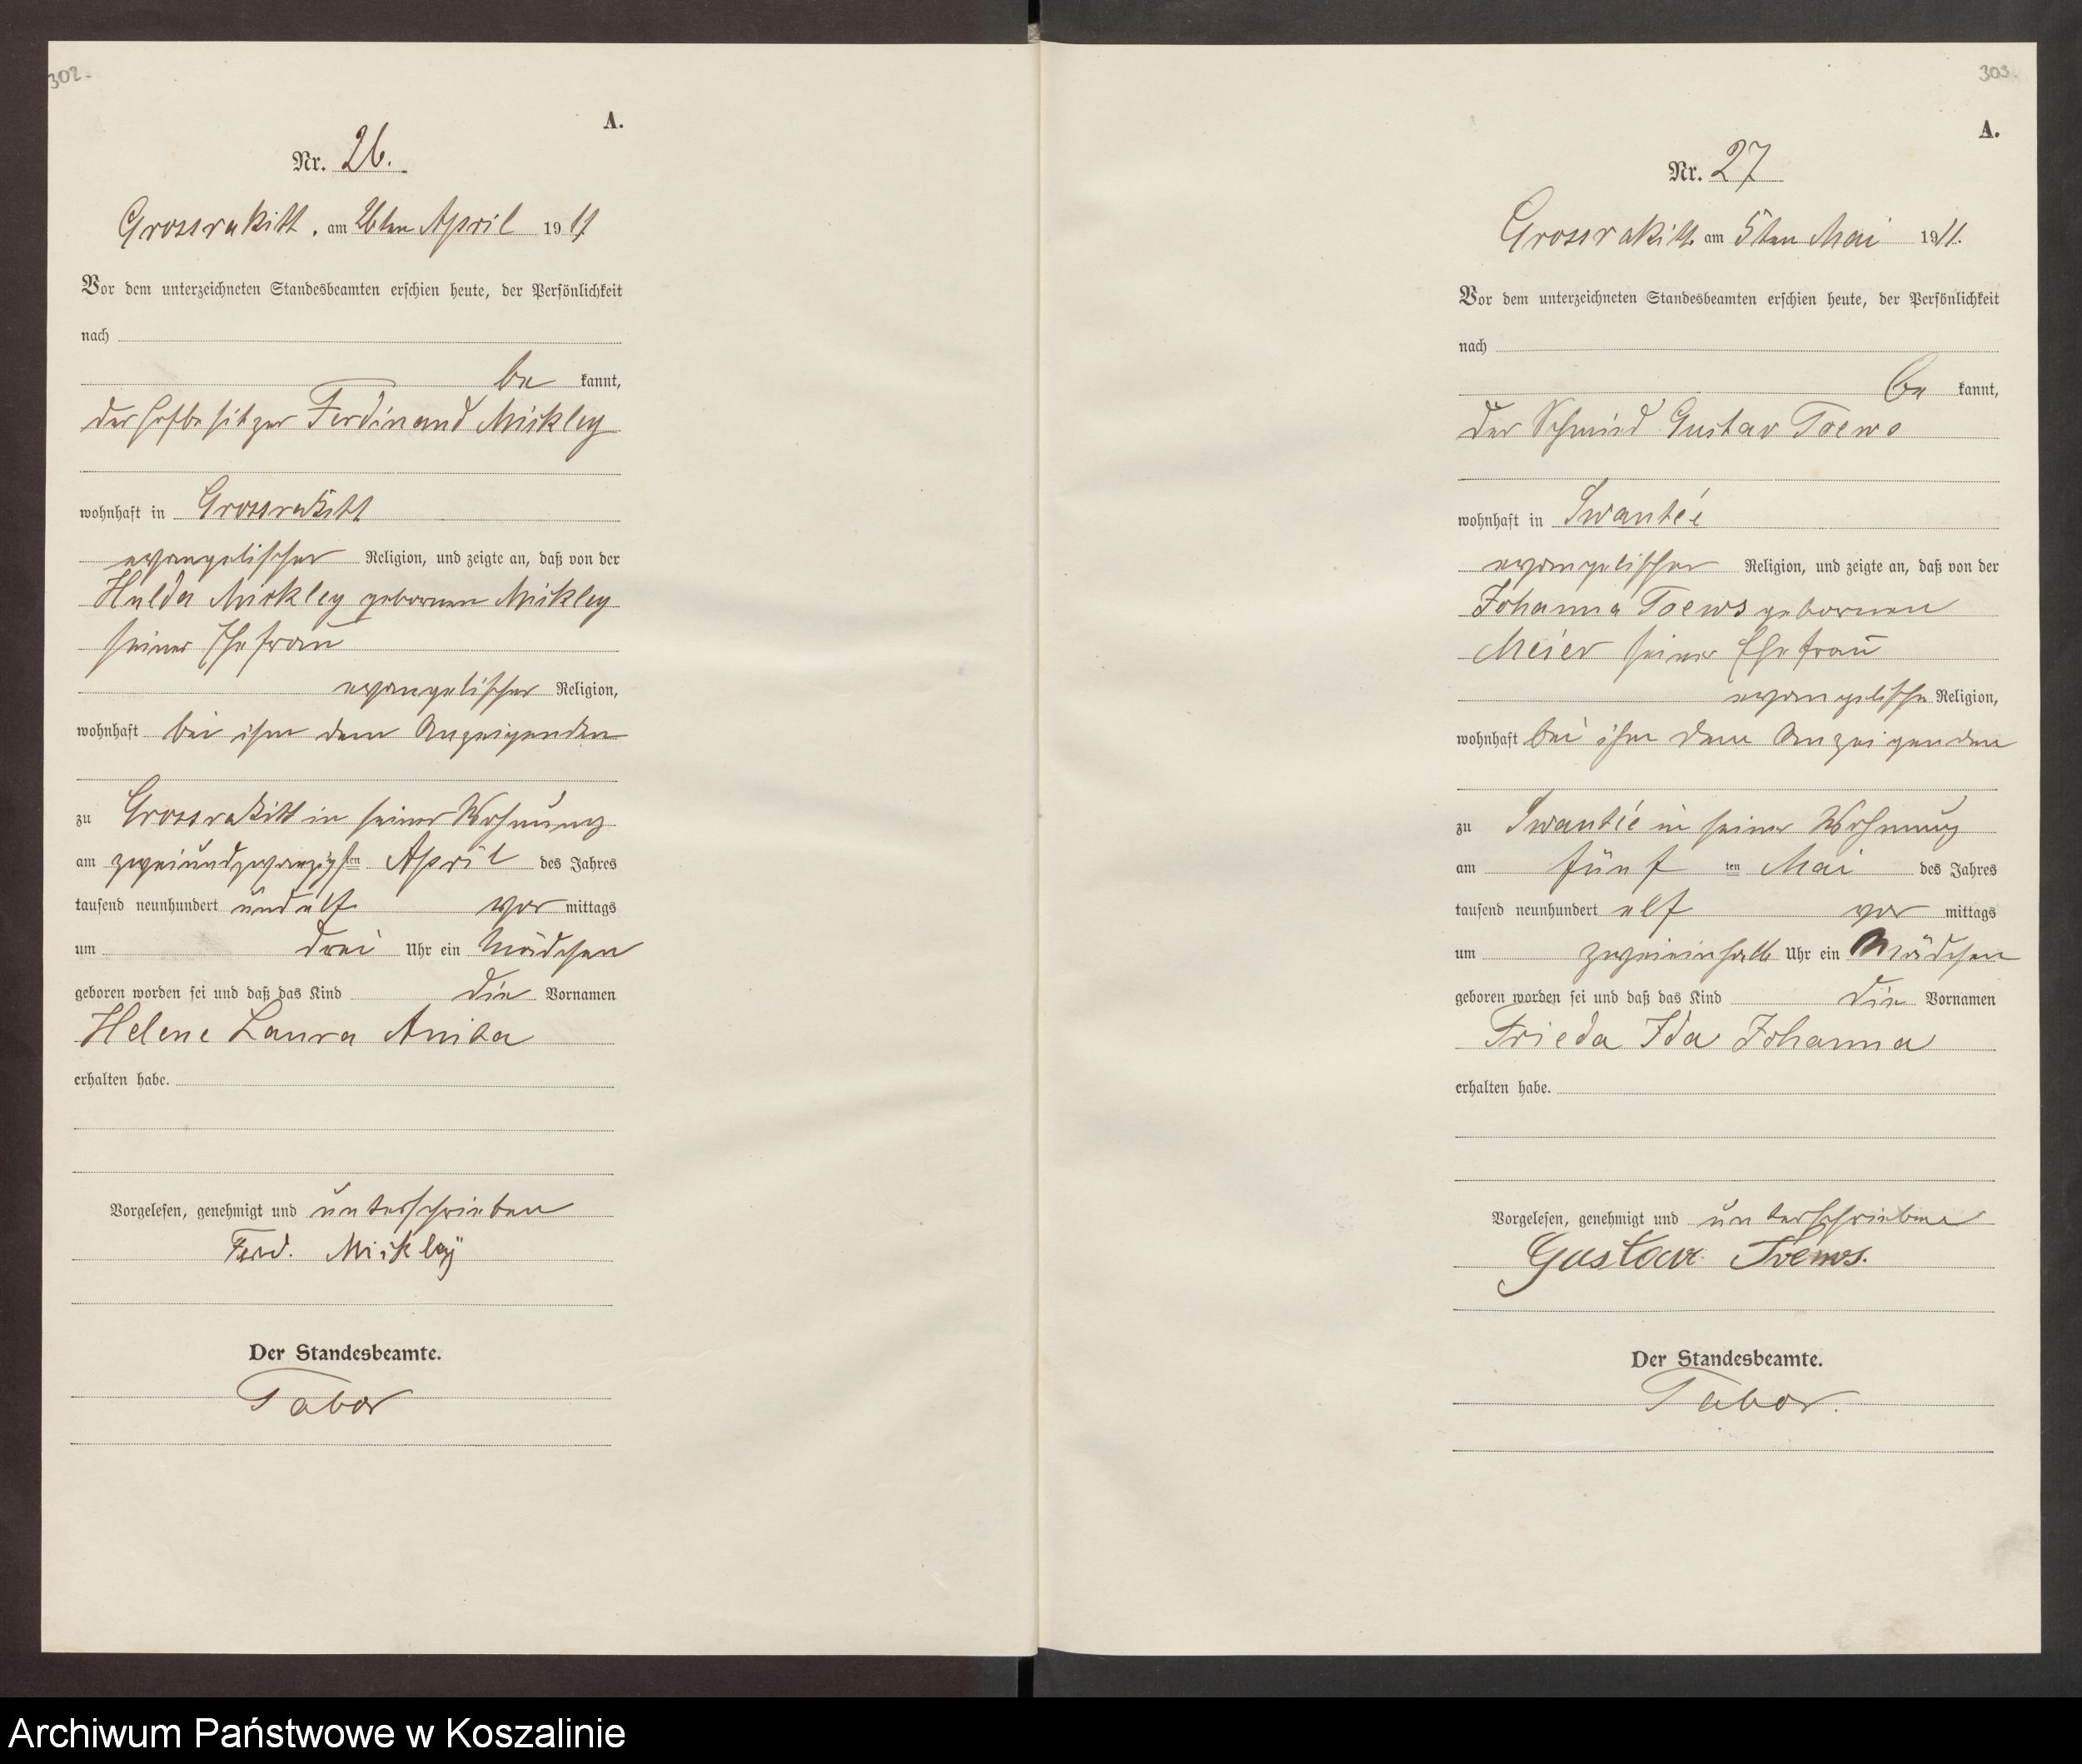 302.
A.
Nr. 26.
Grossrakitt, am 26ten April 1911
Vor dem unterzeichneten Standesbeamten erschien heute, der Persönlichkeit
nach
be kannt,
der Hofbesitzer Ferdinand Mickley
wohnhaft in Grossrakitt
evangelischer Religion, und zeigte an, daß von der
Hulda Mickley geborenen Mickley
seiner Ehefrau
evangelischer Religion,
wohnhaft bei ihm dem Anzeigenden
zu Grossrakitt in seiner Wohnung
am zweiundzwanzigsten April des Jahres
tausend neunhundert und elf vor mittags
um drei Uhr ein Mädchen
geboren worden sei und daß das Kind die Vornamen
Helene Laura Anita
erhalten habe.
Vorgelesen, genehmigt und unterschrieben
Ferd. Mickleÿ
Der Standesbeamte.
Tabor
303.
A.
Nr. 27
Grossrakitt am 5ten Mai 1911.
Vor dem unterzeichneten Standesbeamten erschien heute, der Persönlichkeit
nach
be kannt,
der Schmied Gustav Toews
wohnhaft in Swantee
evangelischer Religion, und zeigte an, daß von der
Johanna Toews geborenen
Meier seiner Ehefrau
evangelische Religion,
wohnhaft bei ihm dem Anzeigenden
zu Swantee in seiner Wohnung
am fünf ten Mai des Jahres
tausend neunhundert elf vor mittags
um zweieinhalb Uhr ein Mädchen
geboren worden sei und daß das Kind die Vornamen
Frieda Ida Johanna
erhalten habe.
Vorgelesen, genehmigt und unterschrieben
Gustav Toews.
Der Standesbeamte.
Tabor.
Archiwum Państwowe w Koszalinie